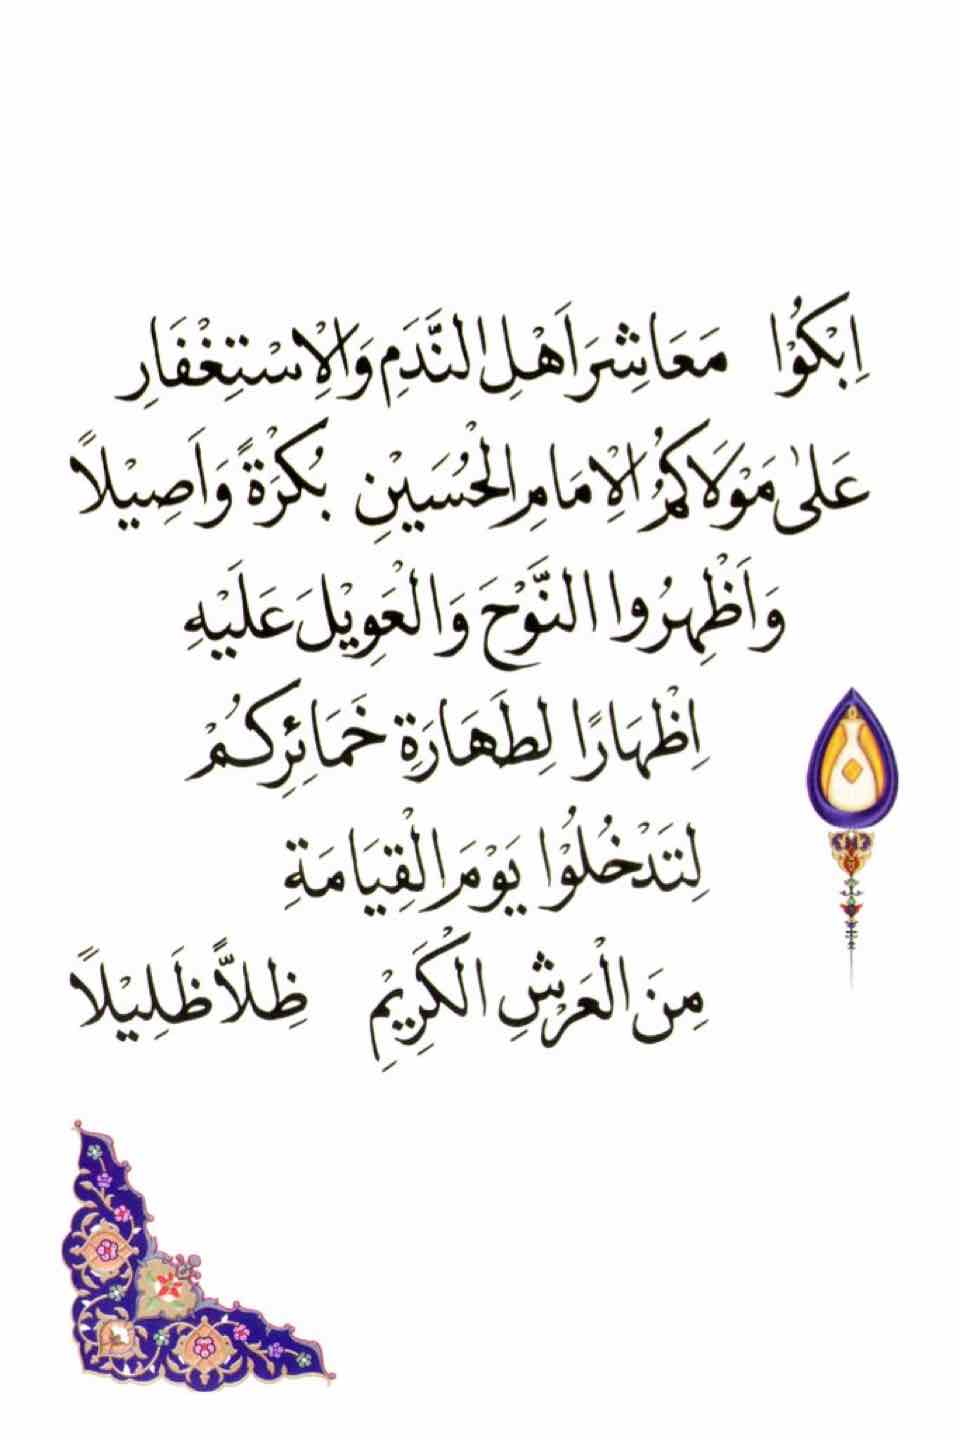 اِبْكُوْا مَعَاشِرَ اَهْلِ النَّدَمِ وَالْاِسْتِغْفَارِ
عَلىٰ مَوْلَاكُمُ الْاِمَامِ الْحُسَيْنِ بُكْرَةً وَاَصِيْلًا
وَاَظْهِرُوا النَّوْحَ وَالْعَوِيْلَ عَلَيْهِ
اِظْهَارًا لِطَهَارَةِ خَمَائِرِكُمْ
لِتَدْخُلُوْا يَوْمَ الْقِيَامَةِ
مِنَ الْعَرْشِ الْكَرِيْمِ ظِلاًّ ظَلِيْلًا